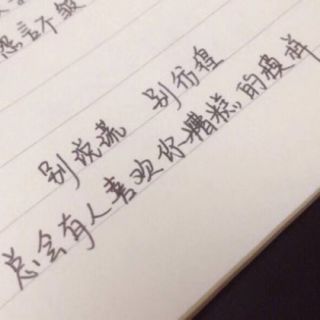 别说谎 别彷徨
总会有人喜欢你糟糕的模样